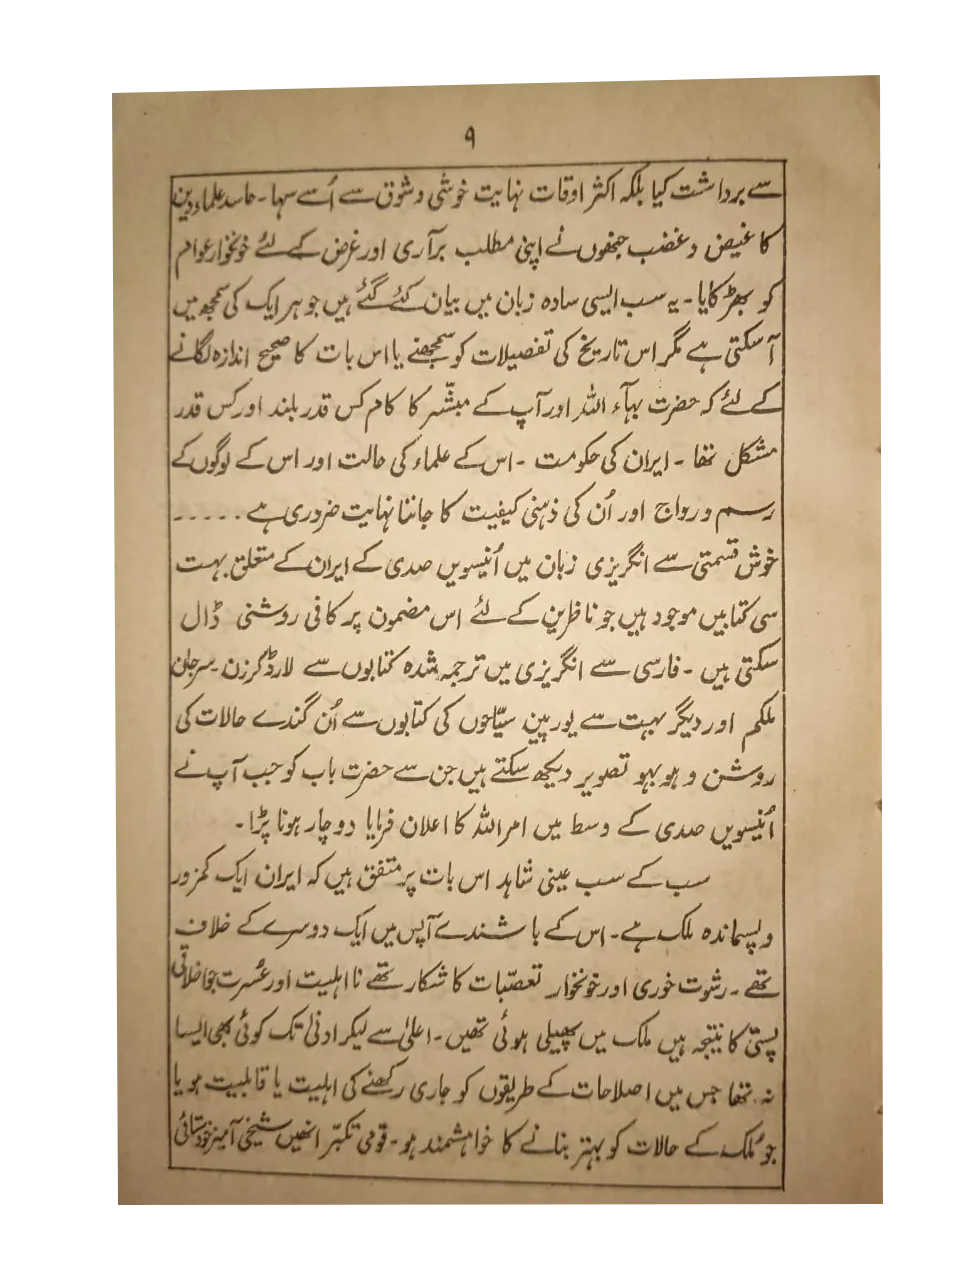 ۹
سے برداشت کیا بلکہ اکثر اوقات نہایت خوشی و شوق سے اُسے سہا۔ حاسد علماء دین
کا غیض و غضب جنھوں نے اپنی مطلب برآری اور غرض کے لئے خونخوار عوام
کو بھڑکایا۔ یہ سب ایسی سادہ زبان میں بیان کئے گئے ہیں جو ہر ایک کی سمجھ میں
آ سکتی ہے مگر اس تاریخ کی تفصیلات کو سمجھنے یا اس بات کا صحیح اندازہ لگانے
کے لئے کہ حضرت بہآء اللہ اور آپ کے مبشّر کا کام کس قدر بلند اور کس قدر
مشکل تھا ۔ ایران کی حکومت ۔ اس کے علماء کی حالت اور اس کے لوگوں کے
رسم و رواج اور اُن کی ذہنی کیفیت کا جاننا نہایت ضروری ہے ۔۔۔۔۔
خوش قسمتی سے انگریزی زبان میں اُنیسویں صدی کے ایران کے متعلق بہت
سی کتابیں موجود ہیں جو ناظرین کے لئے اس مضمون پر کافی روشنی ڈال
سکتی ہیں ۔ فارسی سے انگریزی میں ترجمہ شدہ کتابوں سے لارڈ کرزن ۔ سرجان
ملکم اور دیگر بہت سے یورپین سیّاحوں کی کتابوں سے اُن گندے حالات کی
روشن و ہوبہو تصویر دیکھ سکتے ہیں جن سے حضرت باب کو جب آپ نے
اُنیسویں صدی کے وسط میں امر اللہ کا اعلان فرمایا دوچار ہونا پڑا ۔
سب کے سب عینی شاہد اس بات پر متفق ہیں کہ ایران ایک کمزور
و پسماندہ ملک ہے ۔ اس کے باشندے آپس میں ایک دوسرے کے خلاف
تھے ۔ رشوت خوری اور خونخوار تعصّبات کا شکار تھے نا اہلیت اور عُسرت جو اخلاقی
پستی کا نتیجہ ہیں ملک میں پھیلی ہوئی تھیں ۔ اعلیٰ سے لیکر ادنیٰ تک کوئی بھی ایسا
نہ تھا جس میں اصلاحات کے طریقوں کو جاری رکھنے کی اہلیت یا قابلیت ہو یا
جو مُلک کے حالات کو بہتر بنانے کا خواہشمند ہو ۔ قومی تکبّر انھیں شیخی آمیز خودستائی